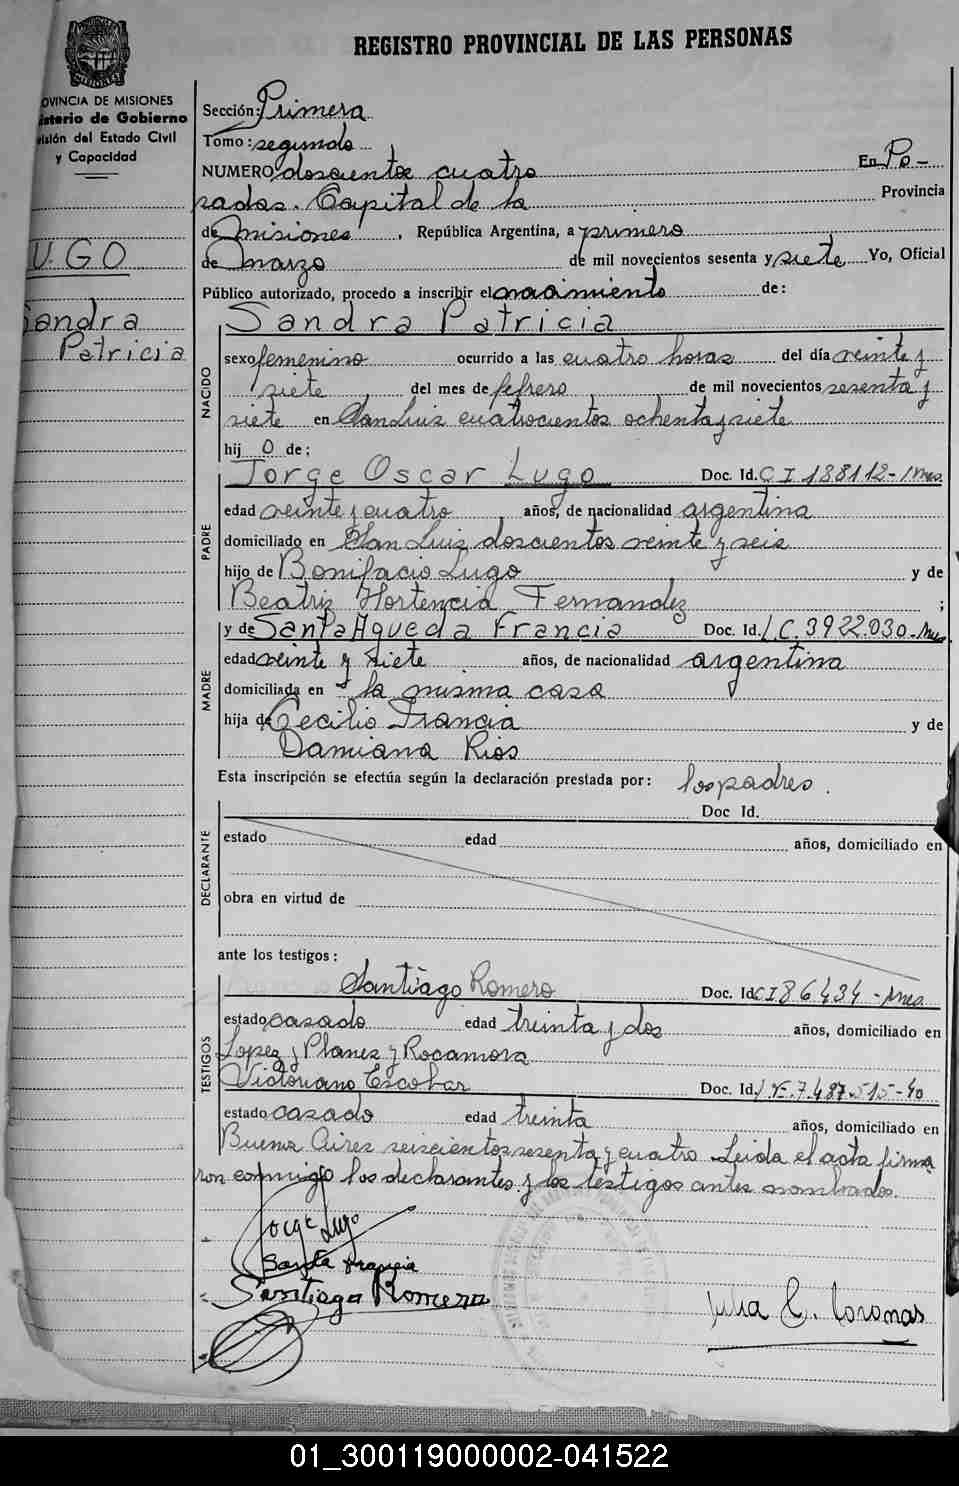 REGISTRO PROVINCIAL DE LAS PERSONAS
MISIONES
OVINCIA DE MISIONES
isterio de Gobierno
isión del Estado Civil
y Capacidad
UGO
Sandra
Patricia
Sección: Primera
Tomo: segundo
NUMERO doscientos cuatro En Po-
sadas. Capital de la Provincia
de Misiones, República Argentina, a primero
de marzo de mil novecientos sesenta y siete Yo, Oficial
Público autorizado, procedo a inscribir el nacimiento de:
NACIDO
Sandra Patricia
sexo femenino ocurrido a las cuatro horas del día veinte y
siete del mes de febrero de mil novecientos sesenta y
siete en San Luis cuatrocientos ochenta y siete
hij o de;
PADRE
Jorge Oscar Lugo Doc. Id. C I 188112-Mnes
edad veinte y cuatro años, de nacionalidad argentina
domiciliado en San Luis doscientos veinte y seis
hijo de Bonifacio Lugo y de
Beatriz Hortencia Fernandez ;
MADRE
y de Santa Agueda Francia Doc. Id. L.C. 3.922.030-Mnes
edad veinte y siete años, de nacionalidad argentina
domiciliada en la misma casa
hija de Cecilio Francia y de
Damiana Rios
Esta inscripción se efectúa según la declaración prestada por: los padres.
DECLARANTE
Doc Id.
estado edad años, domiciliado en
obra en virtud de
ante los testigos:
TESTIGOS
Santiago Romero Doc. Id. C I 86434-Mnes
estado casado edad treinta y dos años, domiciliado en
Lopez y Planes y Rocamora
Victoriano Escobar Doc. Id. 7.487.515-40
estado casado edad treinta años, domiciliado en
Buenos Aires seiscientos sesenta y cuatro Leida el acta firma
ron conmigo los declarantes y los testigos antes nombrados.
Jorge Lugo
Santa Francia
Santiago Romero
Julia C. Coronas
01_300119000002-041522